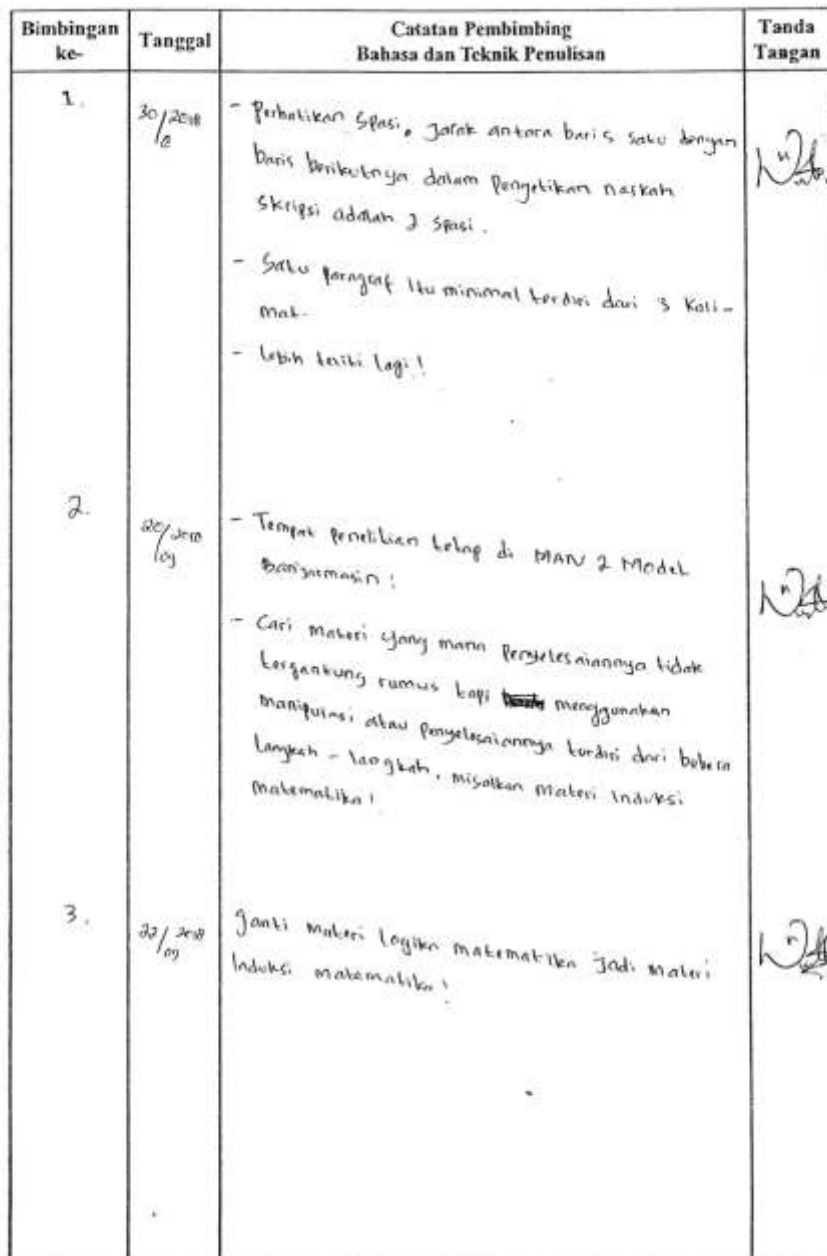 Bimbingan ke-
Tanggal
Catatan Pembimbing
Bahasa dan Teknik Penulisan
Tanda Tangan
1.
30/2018
- Perhatikan Spasi, Jarak antara baris satu dengan
baris berikutnya dalam Pengetikan naskah
Skripsi adalah 2 Spasi.
- Satu paragraf itu minimal terdiri dari 3 Kali-
mat.
- lebih teliti lagi!
2.
20/2018
09
- Tempat penelitian tetap di MAN 2 Model
Banjarmasin!
- Cari materi yang mana penyelesaiannya tidak
tergantung rumus tapi menggunakan
manipulasi atau penyelesaiannya terdiri dari bebera
langkah - langkah, misalkan materi Induksi
matematika!
3.
22/2018
09
Ganti materi Logika matematika Jadi materi
Induksi matematika!